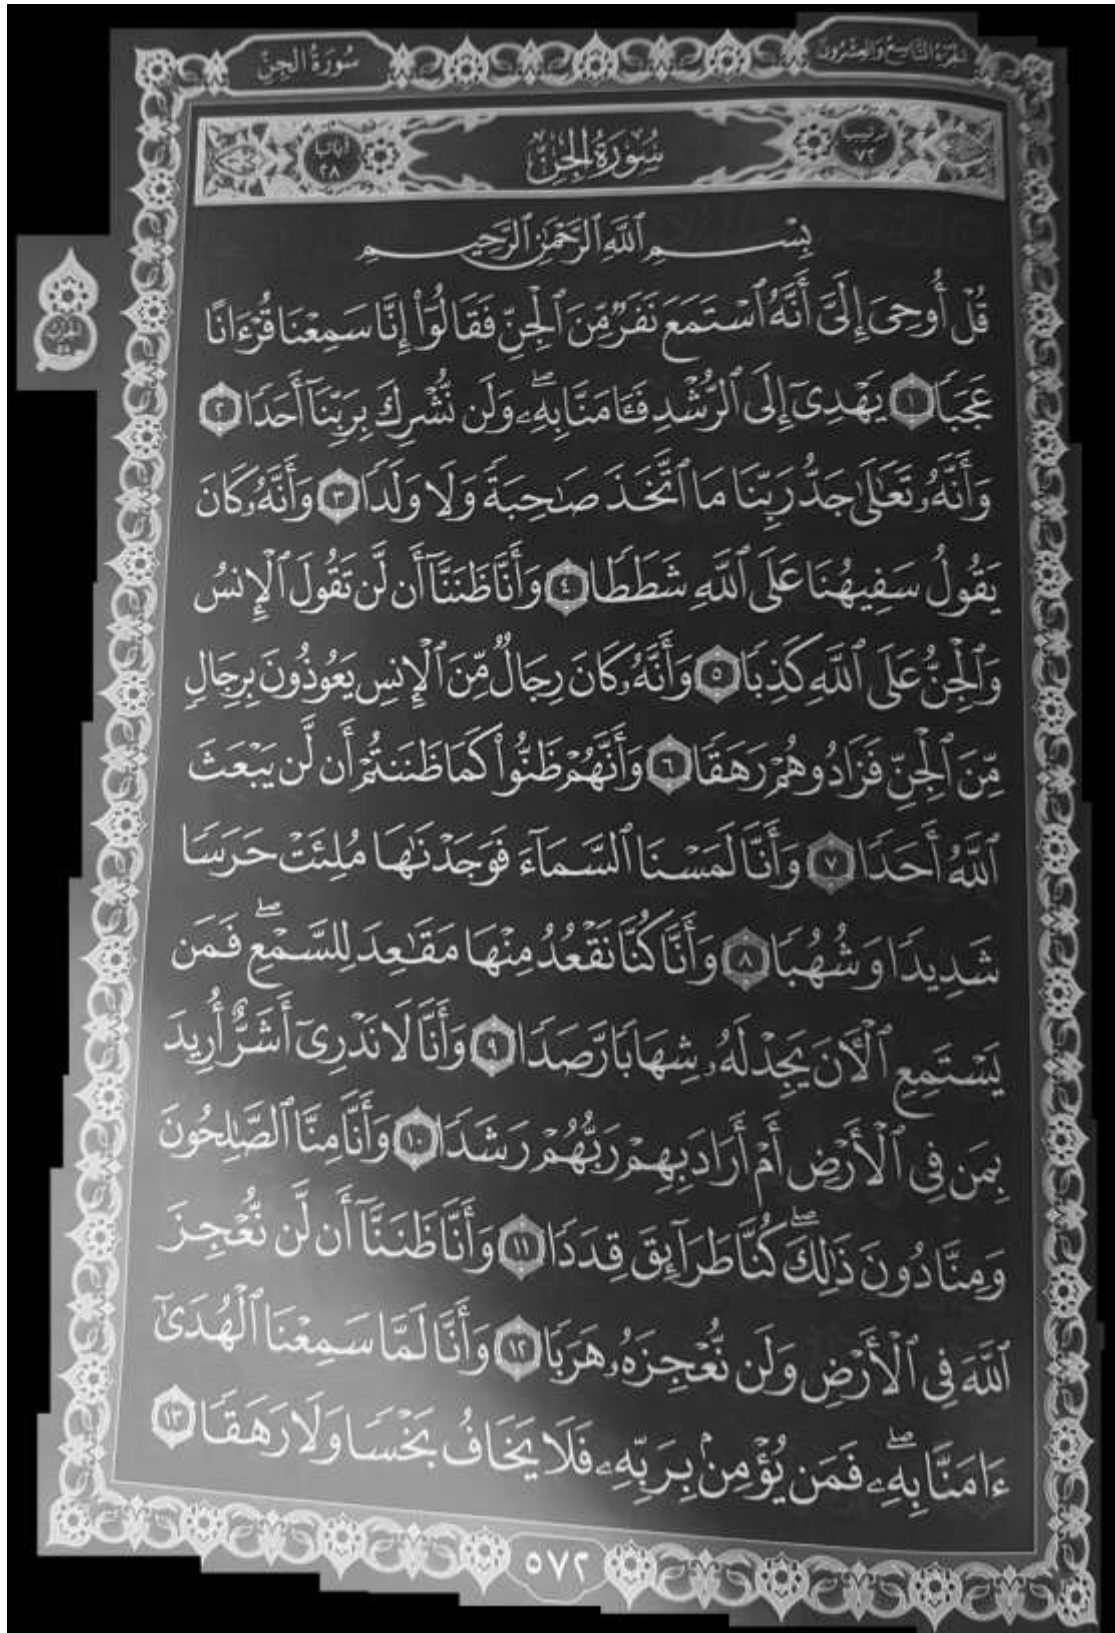 الجزء التاسع والعشرون
سورة الجن
ترتيبها ٧٢
سُورَةُ الجِنِّ
آياتها ٢٨
بِسْمِ ٱللَّهِ ٱلرَّحْمَٰنِ ٱلرَّحِيمِ
قُلْ أُوحِىَ إِلَىَّ أَنَّهُ ٱسْتَمَعَ نَفَرٌ مِّنَ ٱلْجِنِّ فَقَالُوٓا۟ إِنَّا سَمِعْنَا قُرْءَانًا
عَجَبًا ١ يَهْدِىٓ إِلَى ٱلرُّشْدِ فَـَٔامَنَّا بِهِۦ ۖ وَلَن نُّشْرِكَ بِرَبِّنَآ أَحَدًا ٢
وَأَنَّهُۥ تَعَٰلَىٰ جَدُّ رَبِّنَا مَا ٱتَّخَذَ صَٰحِبَةً وَلَا وَلَدًا ٣ وَأَنَّهُۥ كَانَ
يَقُولُ سَفِيهُنَا عَلَى ٱللَّهِ شَطَطًا ٤ وَأَنَّا ظَنَنَّآ أَن لَّن تَقُولَ ٱلْإِنسُ
وَٱلْجِنُّ عَلَى ٱللَّهِ كَذِبًا ٥ وَأَنَّهُۥ كَانَ رِجَالٌ مِّنَ ٱلْإِنسِ يَعُوذُونَ بِرِجَالٍ
مِّنَ ٱلْجِنِّ فَزَادُوهُمْ رَهَقًا ٦ وَأَنَّهُمْ ظَنُّوا۟ كَمَا ظَنَنتُمْ أَن لَّن يَبْعَثَ
ٱللَّهُ أَحَدًا ٧ وَأَنَّا لَمَسْنَا ٱلسَّمَآءَ فَوَجَدْنَٰهَا مُلِئَتْ حَرَسًا
شَدِيدًا وَشُهُبًا ٨ وَأَنَّا كُنَّا نَقْعُدُ مِنْهَا مَقَٰعِدَ لِلسَّمْعِ ۖ فَمَن
يَسْتَمِعِ ٱلْـَٔانَ يَجِدْ لَهُۥ شِهَابًا رَّصَدًا ٩ وَأَنَّا لَا نَدْرِىٓ أَشَرٌّ أُرِيدَ
بِمَن فِى ٱلْأَرْضِ أَمْ أَرَادَ بِهِمْ رَبُّهُمْ رَشَدًا ١٠ وَأَنَّا مِنَّا ٱلصَّٰلِحُونَ
وَمِنَّا دُونَ ذَٰلِكَ ۖ كُنَّا طَرَآئِقَ قِدَدًا ١١ وَأَنَّا ظَنَنَّآ أَن لَّن نُّعْجِزَ
ٱللَّهَ فِى ٱلْأَرْضِ وَلَن نُّعْجِزَهُۥ هَرَبًا ١٢ وَأَنَّا لَمَّا سَمِعْنَا ٱلْهُدَىٰٓ
ءَامَنَّا بِهِۦ ۖ فَمَن يُؤْمِنۢ بِرَبِّهِۦ فَلَا يَخَافُ بَخْسًا وَلَا رَهَقًا ١٣
٥٧٢